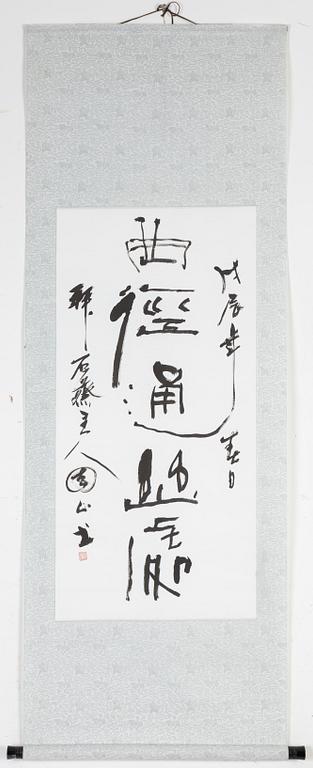 戊辰 春日
曲徑通幽處
石齋主人 山書